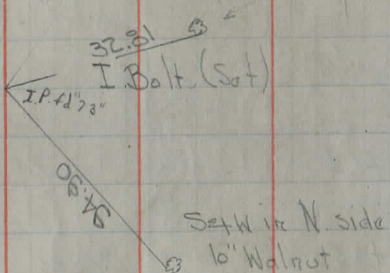 32.81
I. Bolt. (Set)
I.P. fd
94.90
S+W in N. side
10" Walnut